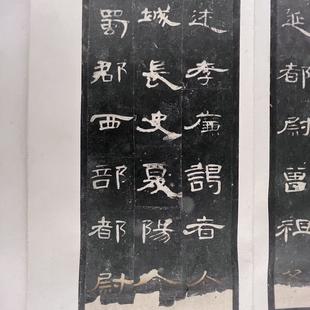 延都尉曾祖
述孝廉謁者
城長史夏陽令
蜀郡西部都尉